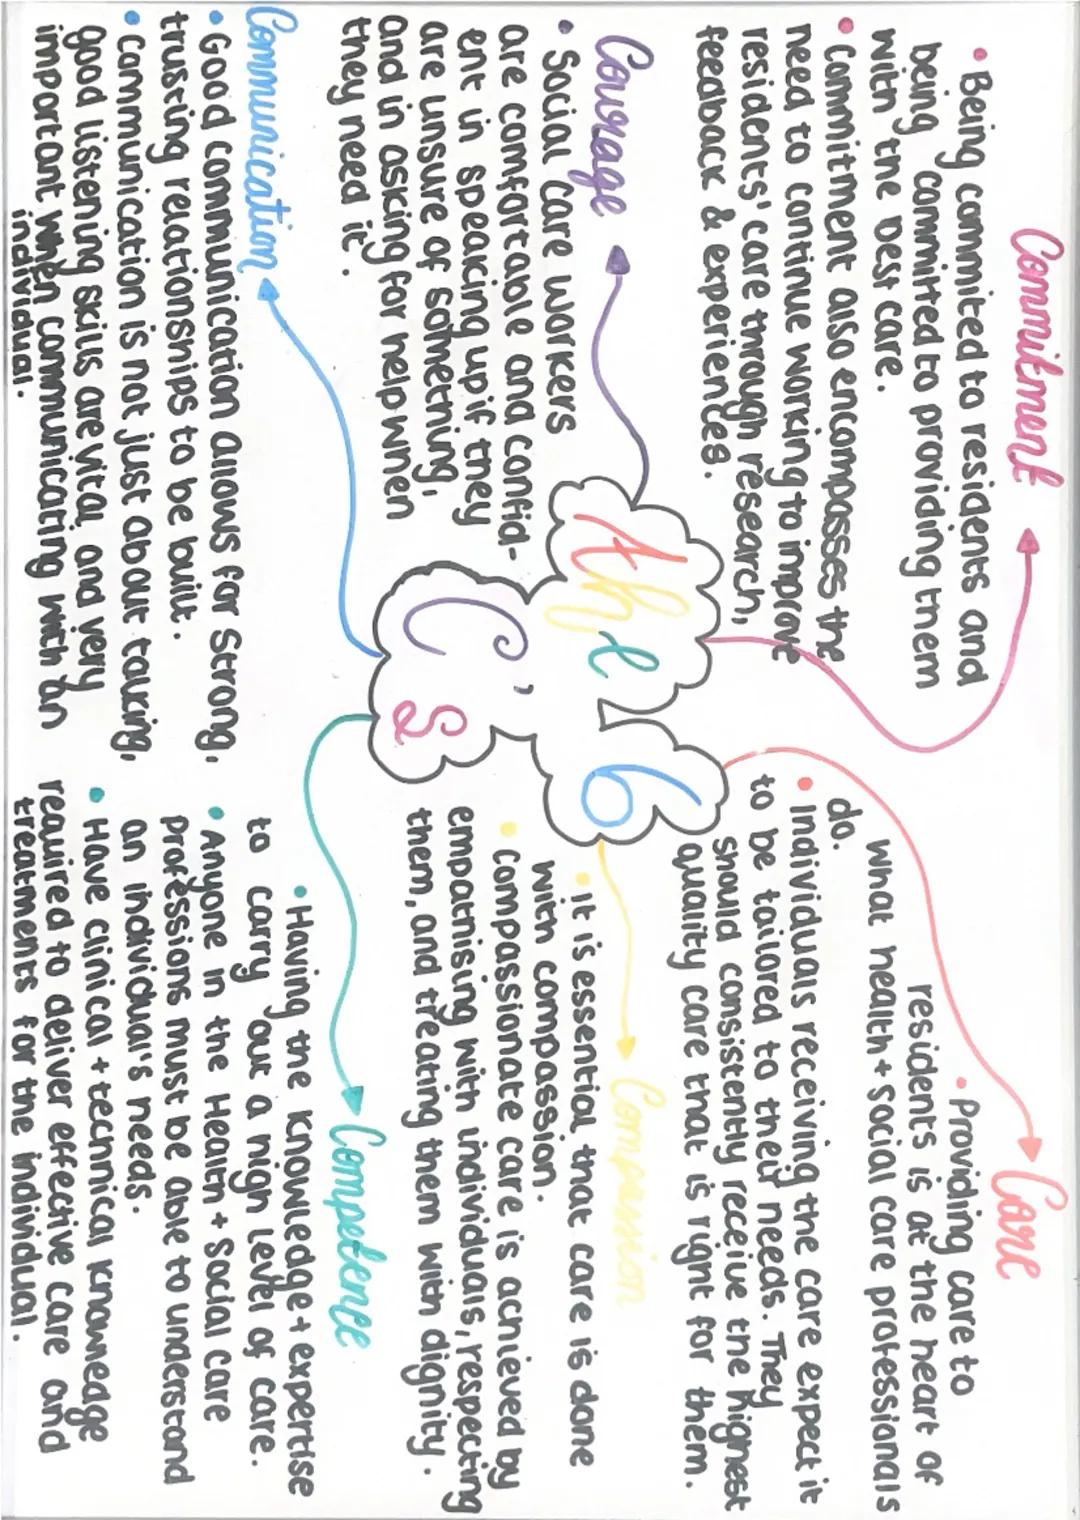 The 6
C's
Commitment
• Being commited to residents and
being committed to providing them
with the best care.
• Commitment also encompasses the
need to continue working to improve
residents' care through research,
feedback & experiences.
Courage
• Social care workers
are comfortable and confid-
ent in speaking up if they
are unsure of something,
and in asking for help when
they need it.
Communication
• Good communication allows for strong,
trusting relationships to be built.
• Communication is not just about talking,
good listening skills are vital, and very
important when communicating with an
individual.
Care
• Providing care to
residents is at the heart of
what health + social care professionals
do.
• Individuals receiving the care expect it
to be tailored to their needs. They
should consistently receive the highest
quality care that is right for them.
Compassion
• It is essential that care is done
with compassion.
• Compassionate care is achieved by
empathising with individuals, respecting
them, and treating them with dignity.
Competence
• Having the knowledge + expertise
to carry out a high level of care.
• Anyone in the Health + Social Care
professions must be able to understand
an individual's needs.
• Have clinical + technical knowledge
required to deliver effective care and
treatments for the individual.